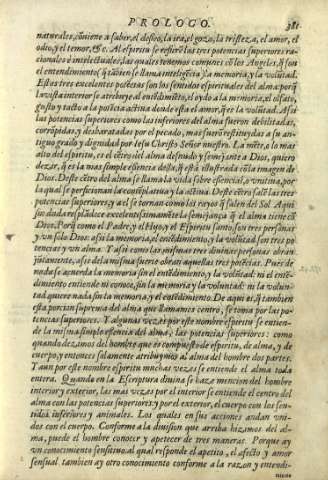 PROLOGO. 381
naturales, cõuiene a saber, el desseo, la ira, el gozo, la tristeza, el amor, el
odio, y el temor, &c. Al espiritu se refierẽ las tres potencias superiores ra-
cionales e intelectuales, las quales tenemos comunes cõ los Angeles, q̃ son
el entendimiento (q̃ tãbien se llama inteligẽcia) la memoria, y la volũtad.
Estas tres excelentes potẽcias son los sentidos espirituales del alma: porq̃
la vista interior se atribuye al entẽdimiẽto, el oydo a la memoria, y el olfato,
gusto y tacto a la potẽcia actiua donde esta el amor, q̃ es la volũtad. Assi
las potencias superiores como las inferiores del alma fueron debilitadas,
corrõpidas, y desbaratadas por el pecado, mas fuerõ restituydas a su an-
tiguo grado y dignidad por Iesu Christo Señor nuestro. La mẽte, o lo mas
alto del espiritu, es el cẽtro del alma desnudo y semejante a Dios, quiero
dezir, q̃ es la mas simple essencia della, q̃ està illustrada cõ la imagen de
Dios. Deste cẽtro del alma se llama la vida sobre essencial, o vnitiua, por
la qual se perficionan la cõtẽplatiua y la actiua. Deste cẽtro salẽ las tres
potencias superiores, y a el se tornan como los rayos q̃ salen del Sol. Aqui
sin duda resplãdece excelentissimamẽte la semejança q̃ el alma tiene cõ
Dios. Porq̃ como el Padre, y el Hijo, y el Espiritu santo, son tres personas
y vn solo Dios: assi la memoria, el entendimiẽto, y la volũtad son tres po-
tencias y vn alma. Y assi como las personas diuinas obran
jũtamente, assi de la misma suerte obran aquellas tres potẽcias. Pues de
nada se acuerda la memoria sin el entendimiẽto, y la volũtad: ni el enten-
dimiento entiende ni conoce, sin la memoria y la voluntad: ni la volun-
tad quiere nada sin la memoria, y el entẽdimiento. De aqui es, q̃ tambien
esta porcion suprema del alma que llamamos centro, se toma por las po-
tencias superiores. Y algunas vezes por este nombre espiritu se entien-
de la misma simple essencia del alma, las potencias superiores: como
quando dezimos del hombre que es compuesto de espiritu, de alma, y de
cuerpo, y entonces solamente atribuymos al alma del hombre dos partes.
Y aun por este nombre espiritu muchas vezes se entiende el alma toda
entera. Quando en la Escriptura diuina se haze mencion del hombre
interior y exterior, las mas vezes por el interior se entiende el centro del
alma con las potencias superiores: y por el exterior, el cuerpo con los sen-
tidos inferiores y animales. Los quales en sus acciones andan vni-
dos con el cuerpo. Conforme a la diuision que arriba hizimos del al-
ma, puede el hombre conocer y apetecer de tres maneras. Porque ay
vn conocimiento sensitiuo, al qual responde el apetito, el afecto y amor
sensual. tambien ay otro conocimiento conforme a la razon y entendi-
miento